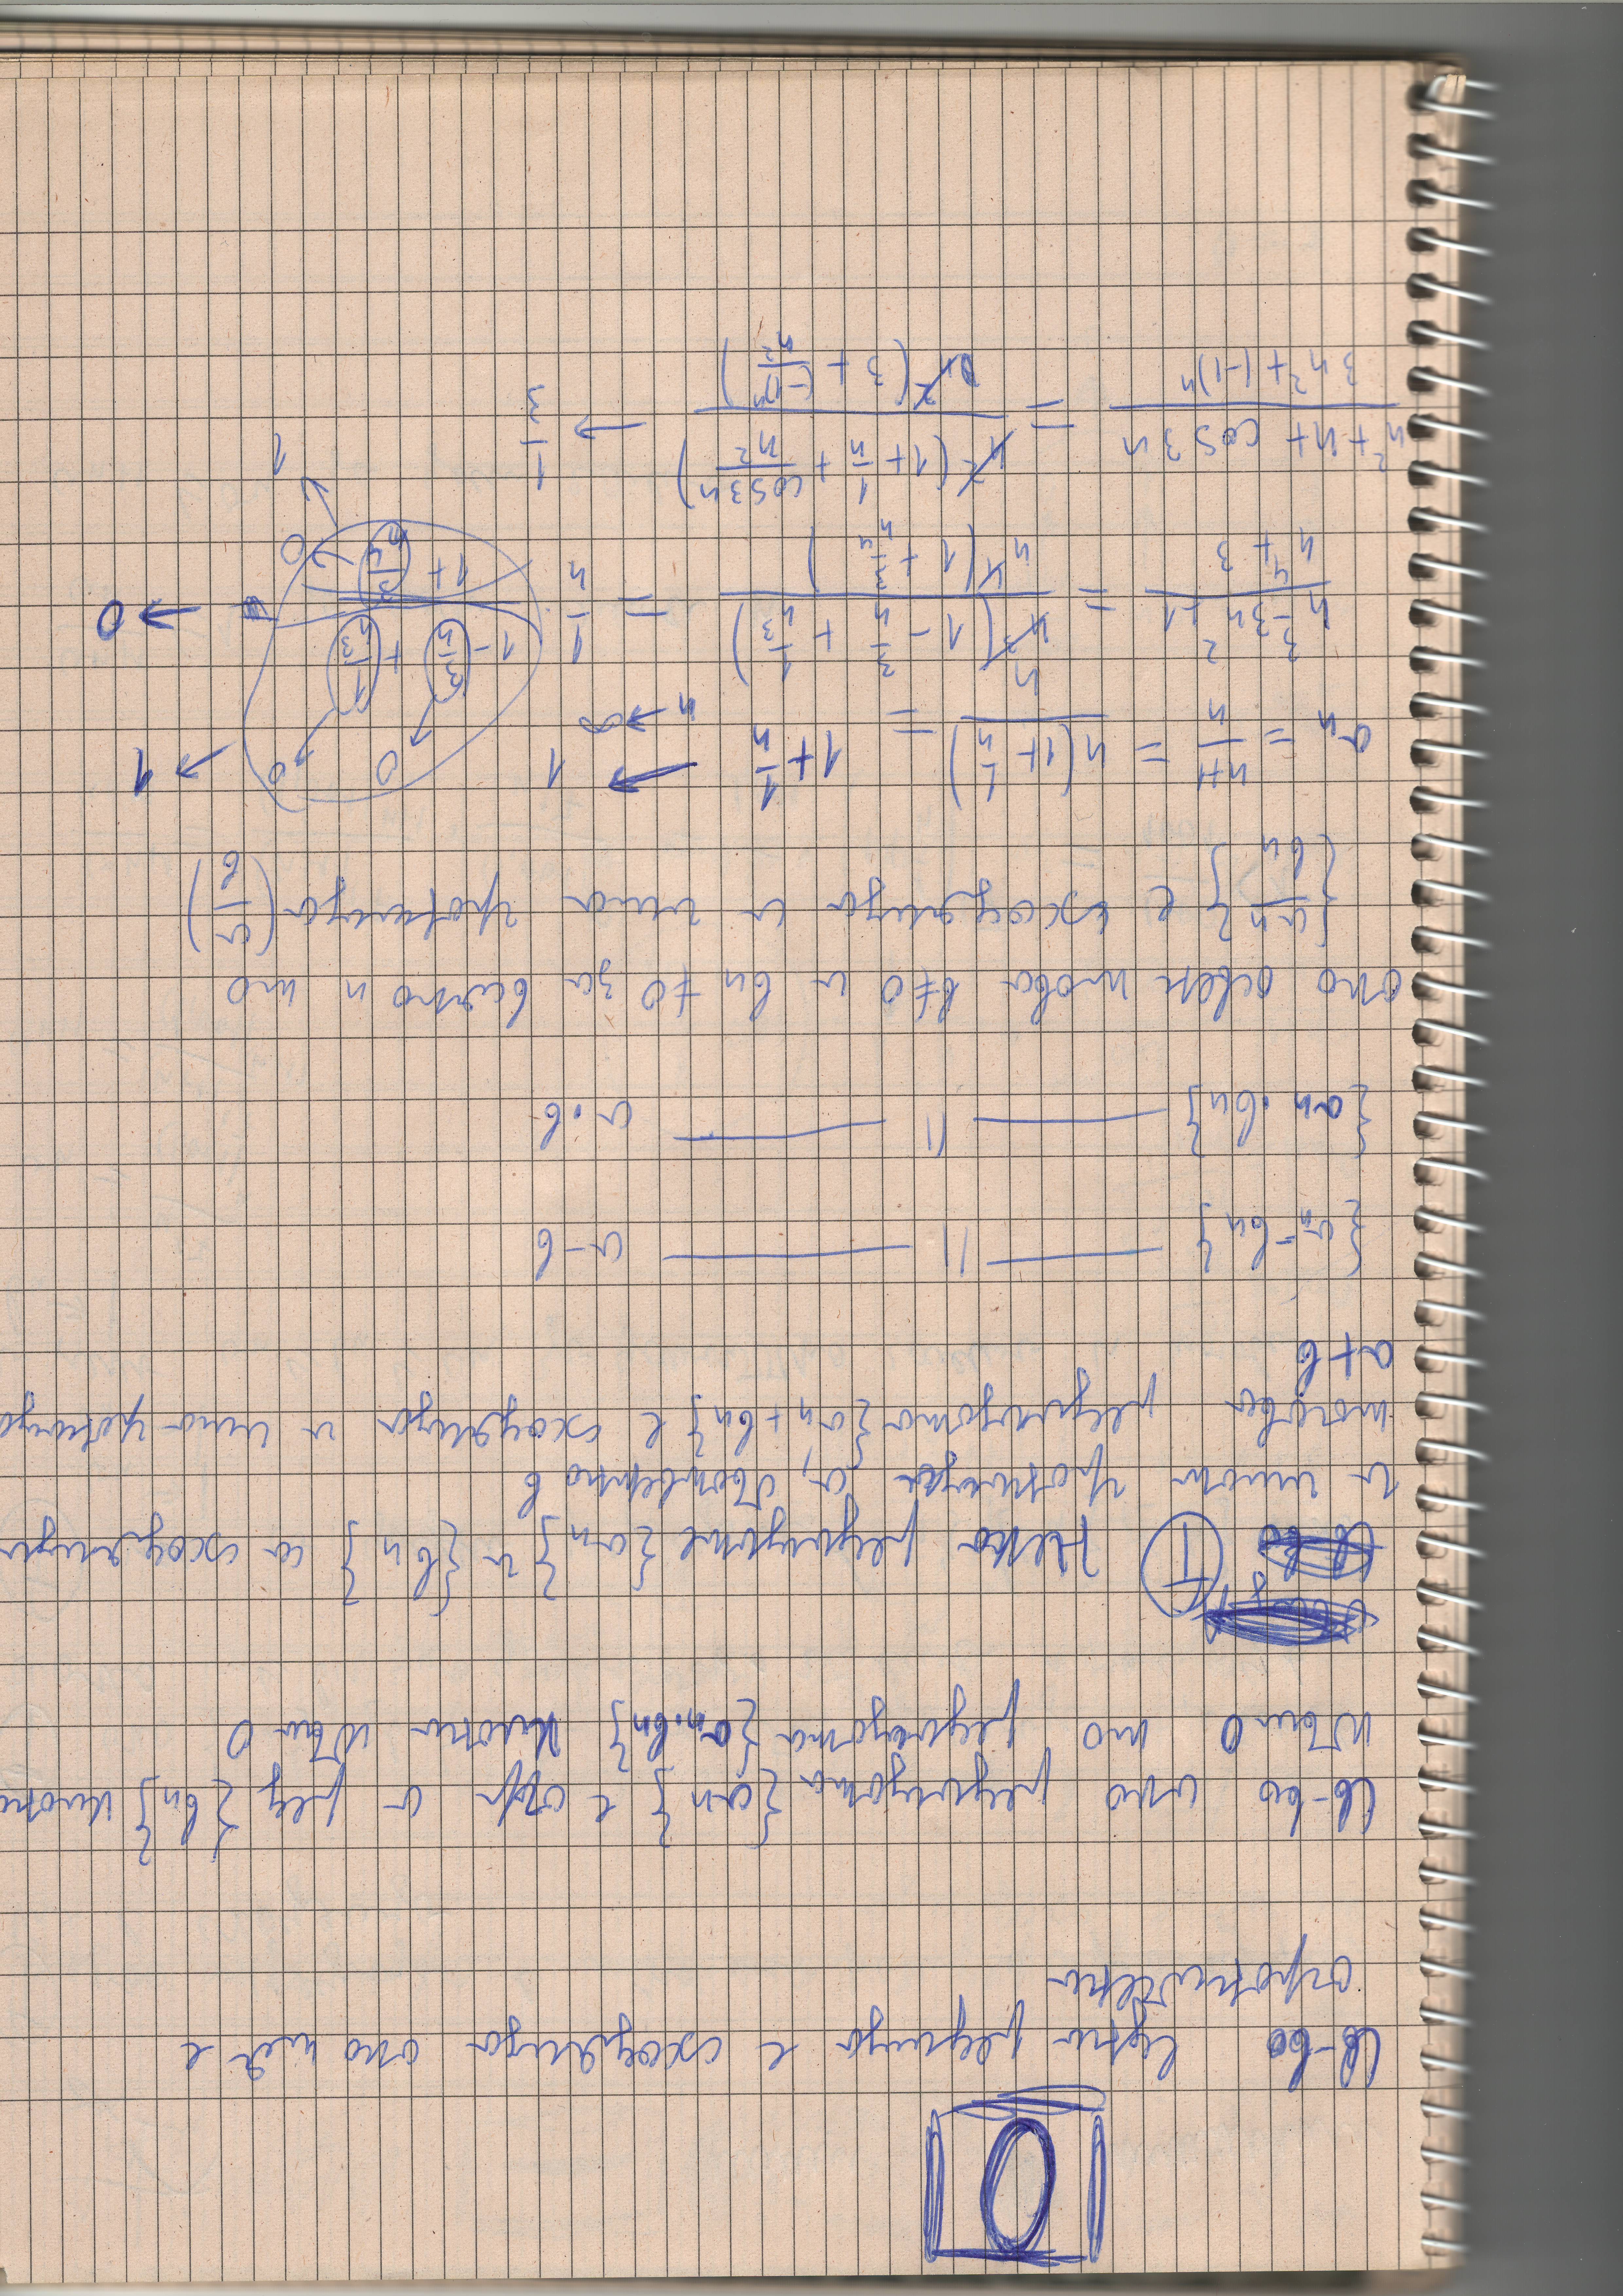 0
Св-во една редица е сходяща ако тя е
ограничена
Св-во ако редицата {an} е огр и ред {bn} клони
към 0 то редицата {an.bn} клони към 0
Ⓣ Нека редиците {an} и {bn} са сходящи
и имат граници a, съответно b
тогава редицата {an + bn} е сходяща и има граница
a+b
{an - bn} —— || —— a-b
{an . bn} —— || —— a.b
ако освен това b≠0 и bn ≠0 за всяко n то
{an/bn} е сходяща и има граница (a/b)
an = n+1/n = n(1+1/n)/n = 1+1/n → 1 n→∞
n³-3n²+1/n⁴+3 = n³(1-3/n+1/n³)/n⁴(1+3/n⁴) = 1/n . (1-3/n+1/n³)/(1+3/n⁴) → 0
n²+n+cos3n/3n²+(-1)ⁿ = n²(1+1/n+cos3n/n²)/n²(3+(-1)ⁿ/n²) → 1/3